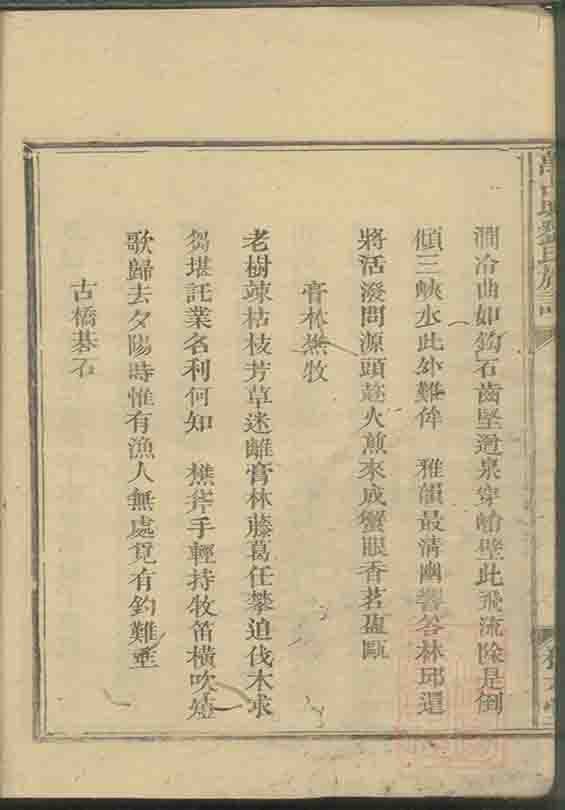 劉氏族譜
澗冷曲如鈎石齒堅遒泉穿峭壁此飛流除是倒
傾三峽水此外難侔 雅韻最清幽響答林邱還
將活潑問源頭趂火煎來成蟹眼香茗盈甌
膏林樵牧
老樹竦枯枝芳草迷離膏林藤葛任攀追伐木求
芻堪託業名利何知 樵斧手輕持牧笛橫吹嬉
歌歸去夕陽時惟有漁人無處覓有釣難垂
古橋碁石